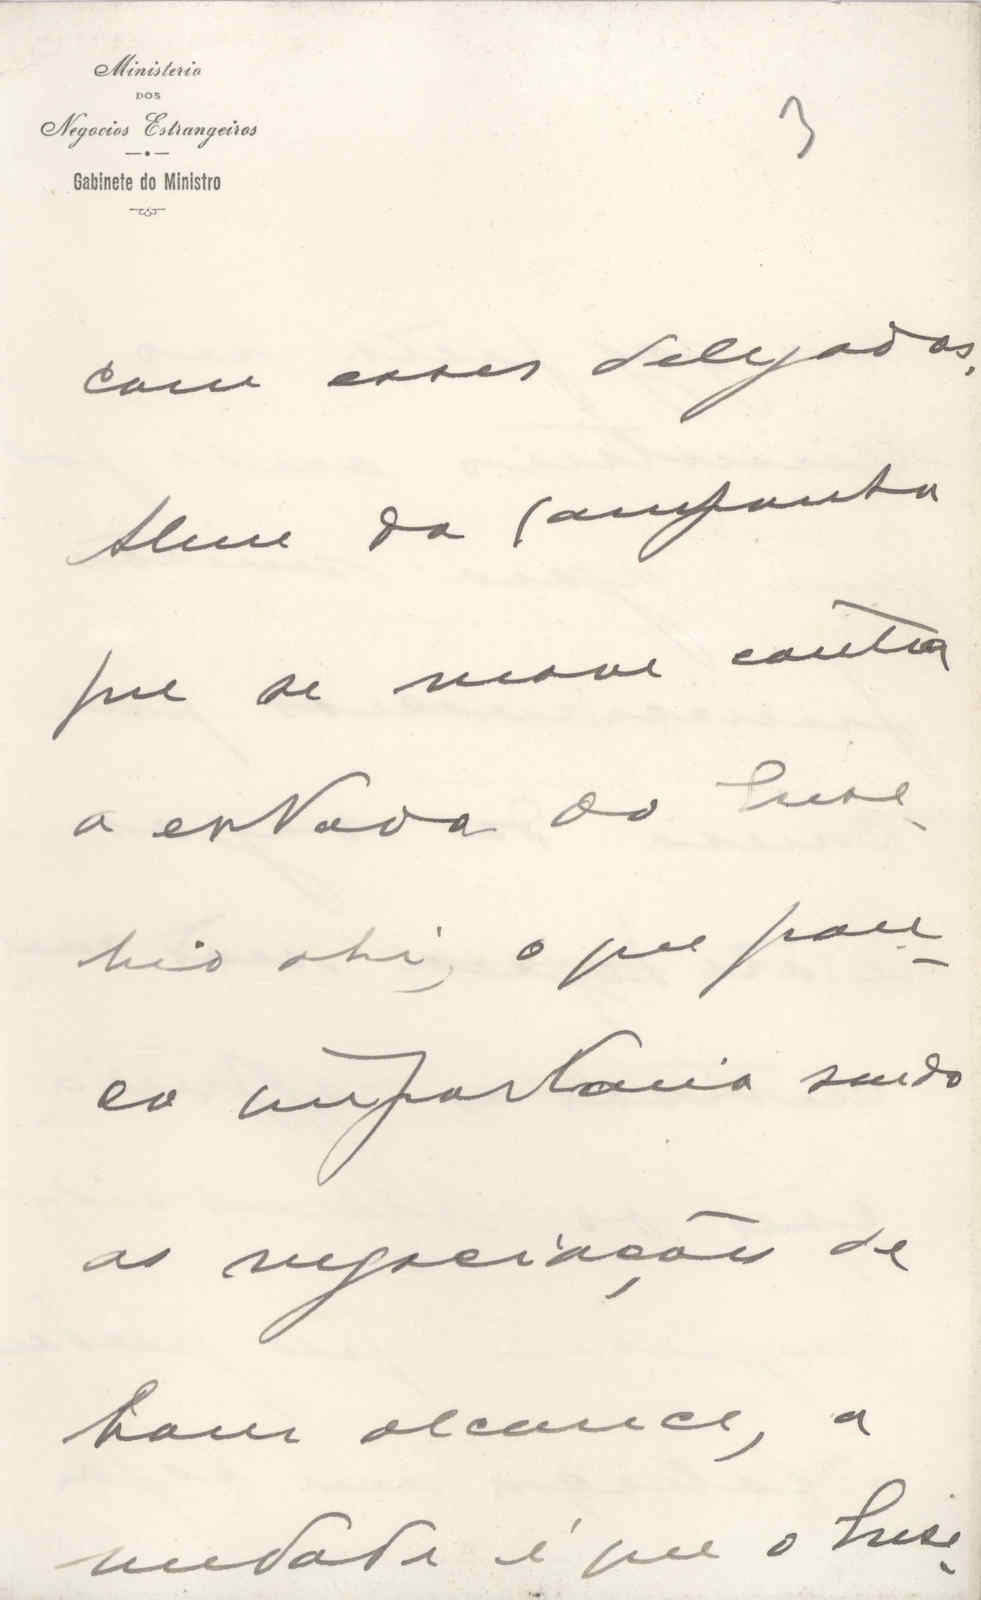 Ministerio
DOS
Negocios Estrangeiros
Gabinete do Ministro
3
com esses delegados.
Alem da campanha
que se move contra
a entrada do Euse-
bio ahi, o que pou-
ca importancia sendo
as negociações de
bom alcance, a
verdade é que o Euse-